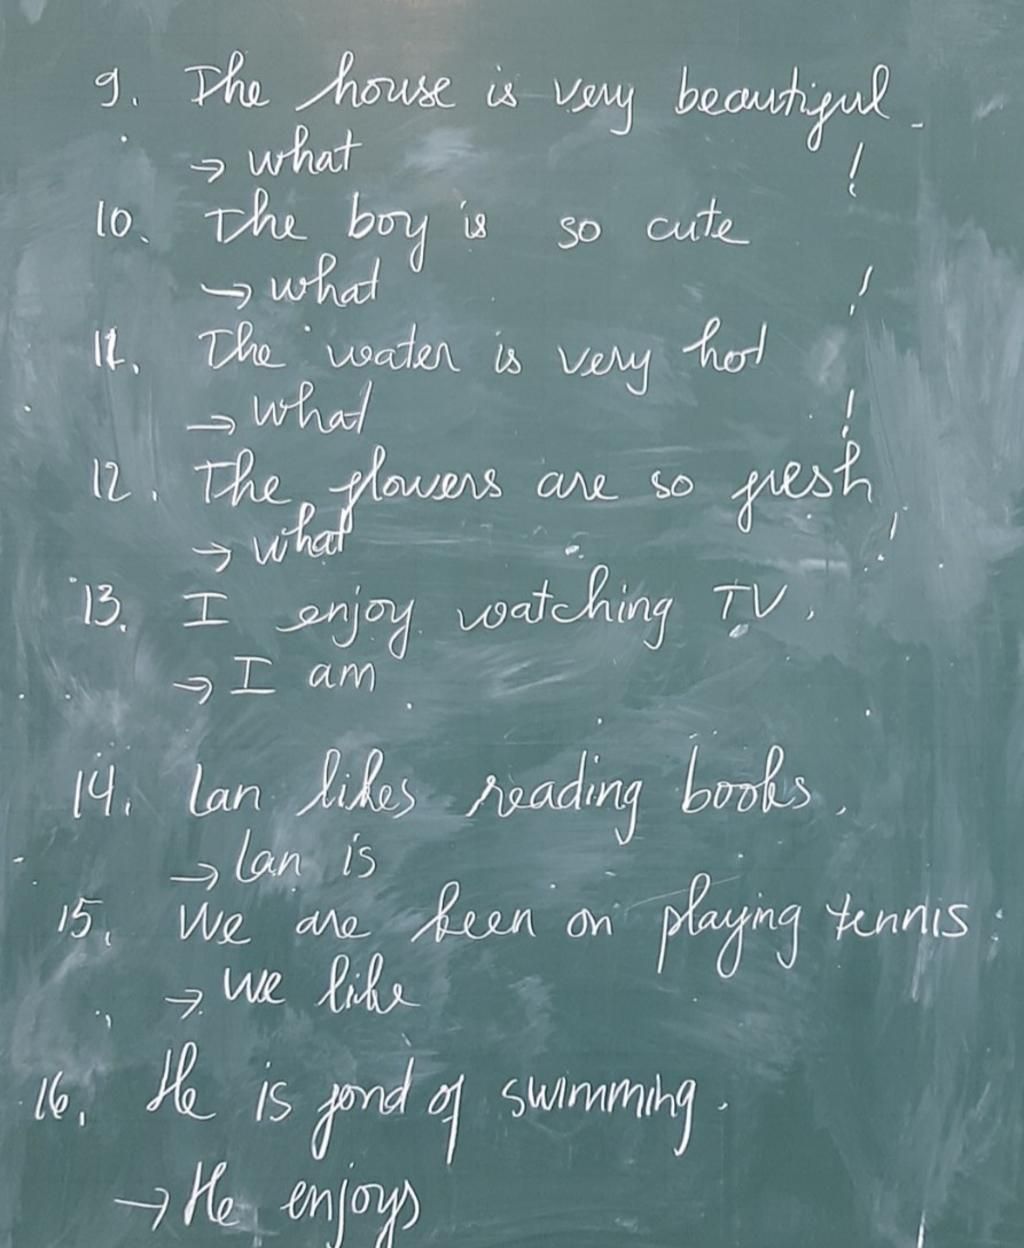 9. The house is very beautiful.
→ what !
10. The boy is so cute
→ what !
11. The water is very hot
→ what !
12. The flowers are so fresh
→ what !
13. I enjoy watching TV.
→ I am
14. Lan likes reading books.
→ Lan is
15. We are keen on playing tennis.
→ We like
16. He is fond of swimming.
→ He enjoys